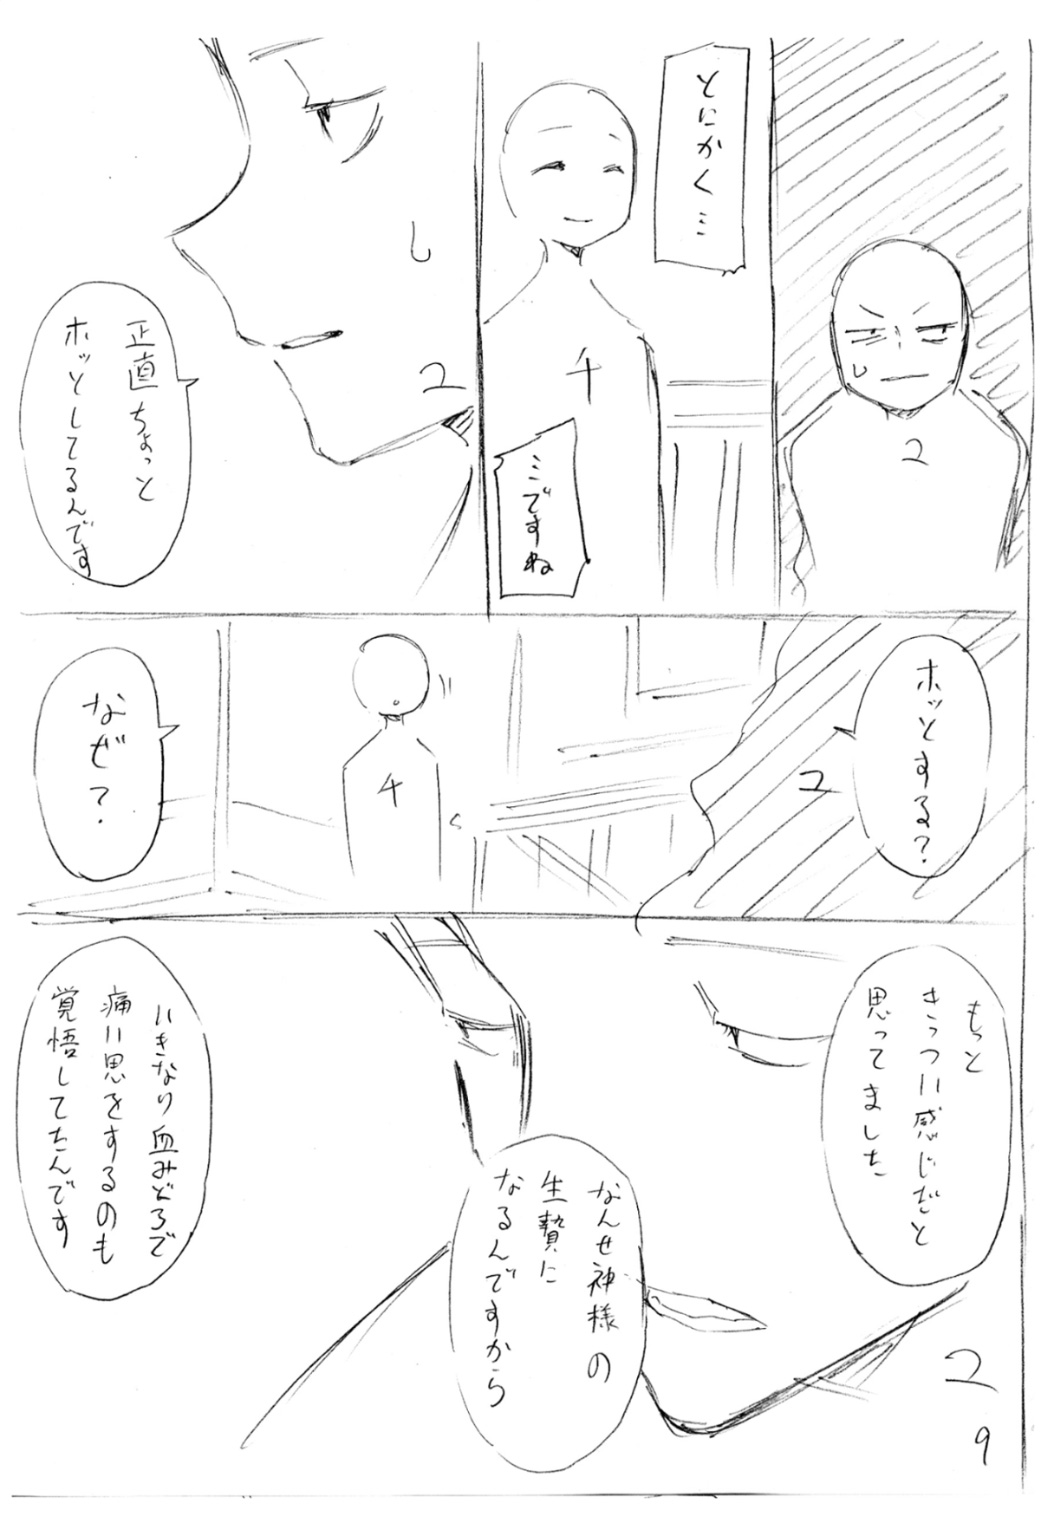 とにかく…
…ですね
ユ
千
ユ
正直ちょっと
ホッとしてるんです
ホッとする?
ユ
千
なぜ?
もっと
きっつい感じだと
思ってました
なんせ神様の
生贄に
なるんですから
いきなり血みどろで
痛い思をするのも
覚悟してたんです
ユ
9